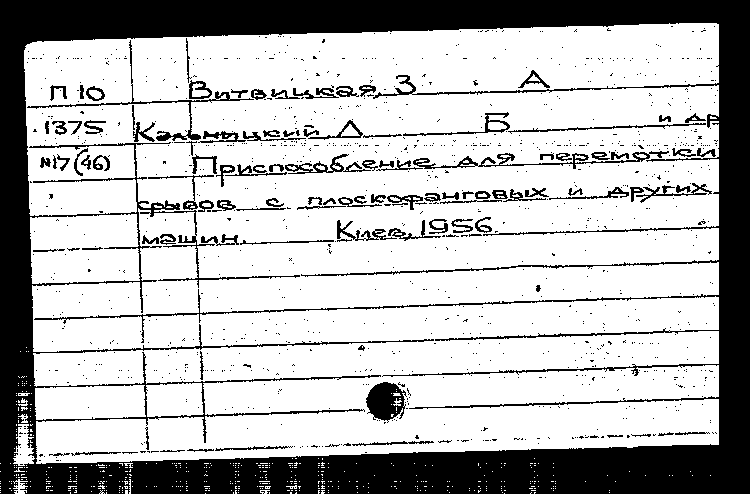 П 10 Витвицкая, З. А
1375 Кальницкий Л Б и др
№17(46) Приспособление для перемотки
срывов с плоскофанговых и других
машин. Киев, 1956